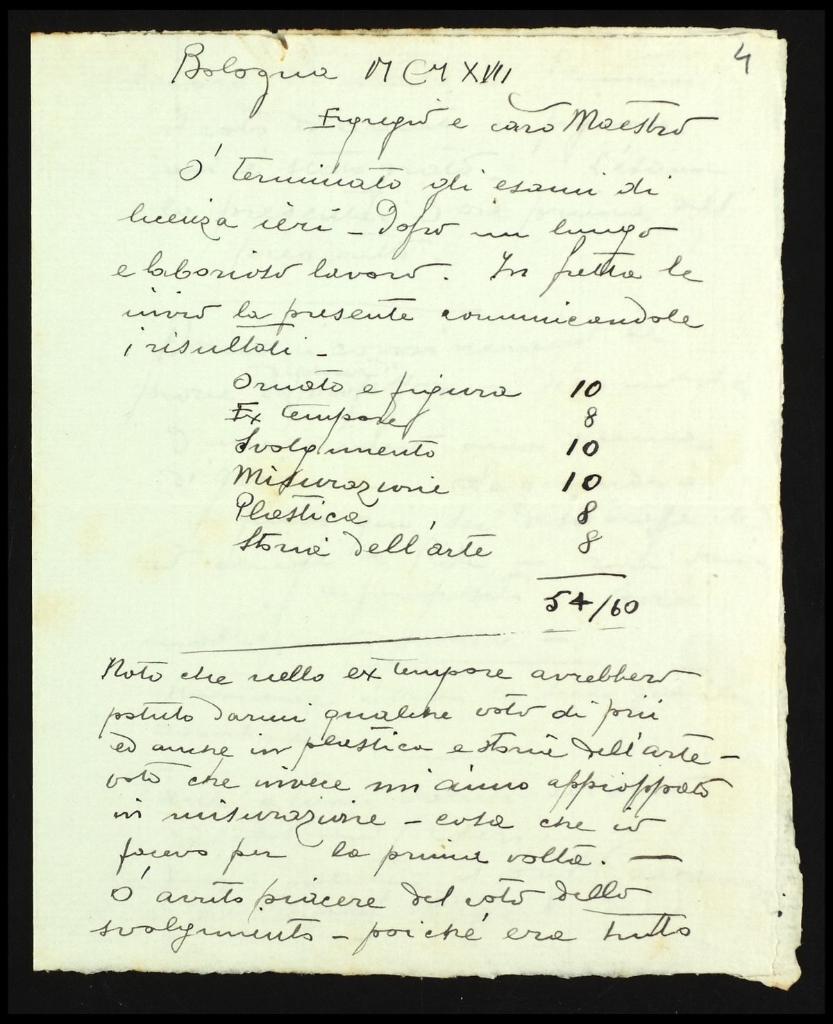 4
Bologna MCMXVII
Egregio e caro Maestro
Ó terminato gli esami di
licenza ieri - Dopo un lungo
e laborioso lavoro. In fretta le
invio la presente comunicandole
i risultati -
Ornato e figura 10
Ex tempore 8
Svolgimento 10
Misurazione 10
Plastica 8
Storia dell'arte 8
54/60
Noto che nello ex tempore avrebbero
potuto darmi qualche voto di più
ed anche in plastica e storia dell'arte -
voto che invece mi ànno appioppato
in misurazione - cosa che io
facevo per la prima volta. -
Ó avuto piacere del voto dello
svolgimento - poiché era tutto